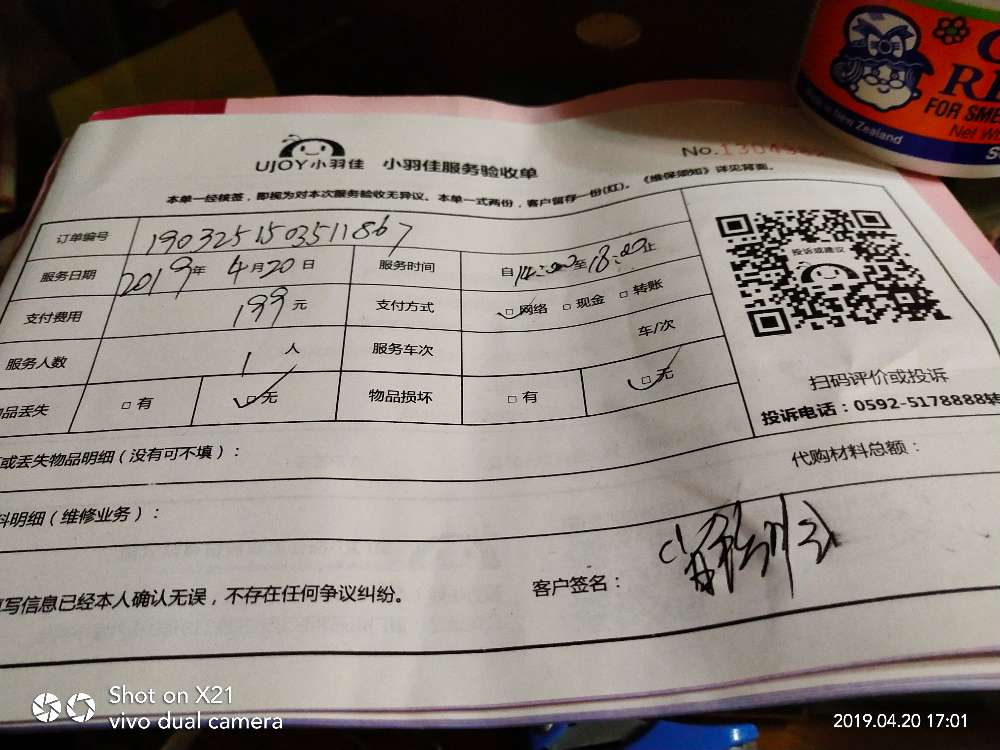 UJOY小羽佳 小羽佳服务验收单
No.
本单一经核签，即视为对本次服务验收无异议。本单一式两份，客户留存一份(红)。《维保须知》详见背面。
订单编号 1903251503511867
服务日期 2019年 4月20日 服务时间 自14:00至18:00止
支付费用 199元 支付方式 □网络 □现金 □转账
服务人数 1人 服务车次 车/次
品丢失 □有 □无 物品损坏 □有 □无
投诉或建议
扫码评价或投诉
投诉电话：0592-5178888转
或丢失物品明细（没有可不填）：
代购材料总额：
料明细（维修业务）：
写信息已经本人确认无误，不存在任何争议纠纷。
客户签名：
RE
FOR SME
Made in New Zealand
Net W
Shot on X21
vivo dual camera
2019.04.20 17:01